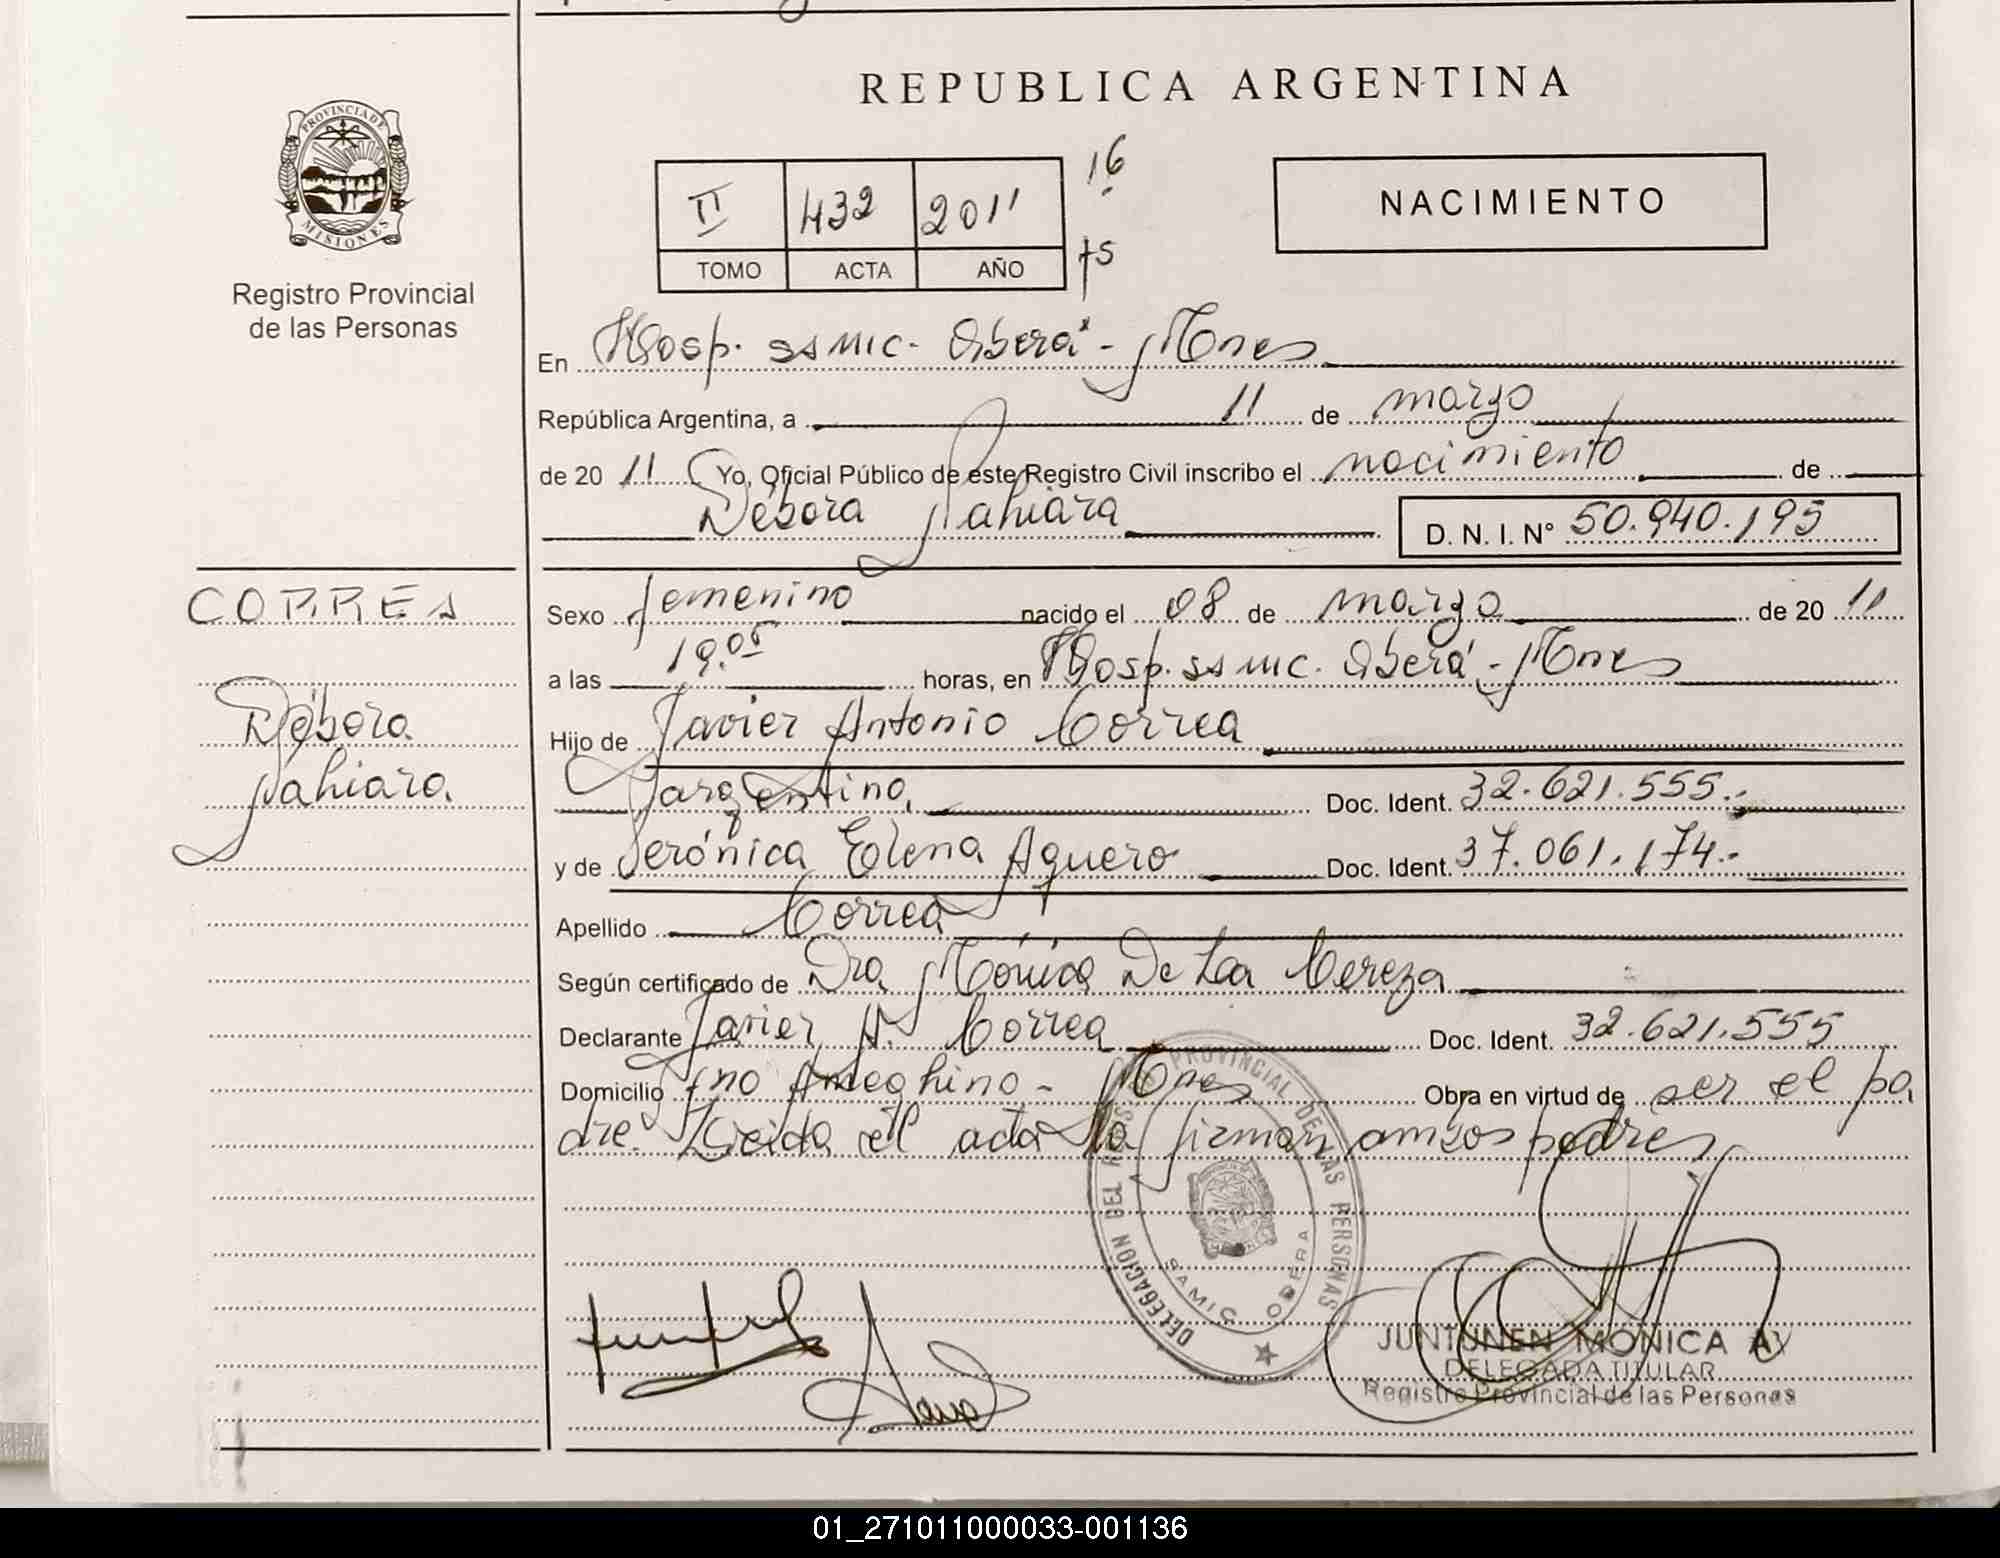 REPUBLICA ARGENTINA
PROVINCIA DE MISIONES
Registro Provincial
de las Personas
II 432 2011
TOMO ACTA AÑO
16
75
NACIMIENTO
En Hosp. SAMIC. Oberá - Mnes
República Argentina, a 11 de marzo
de 20 11 Yo, Oficial Público de este Registro Civil inscribo el nacimiento de
Débora Yahiara D. N. I. N° 50.940.195
CORREA
Débora
Yahiara
Sexo femenino nacido el 08 de marzo de 20 11
a las 19.05 horas, en Hosp. SAMIC. Oberá - Mnes
Hijo de Javier Antonio Correa
argentino, Doc. Ident. 32.621.555.-
y de Verónica Elena Aguero Doc. Ident. 37.061.174.-
Apellido Correa
Según certificado de Dra Mónica De La Cereza
Declarante Javier A. Correa Doc. Ident. 32.621.555
Domicilio fno Ameghino - Mnes Obra en virtud de ser el pa
dre. Leida el acta la firman ambos padres
DELEGACION DEL REGISTRO PROVINCIAL DE LAS PERSONAS
SAMIC OBERA
JUNTUNEN MONICA A.
DELEGADA TITULAR
Registro Provincial de las Personas
01_271011000033-001136